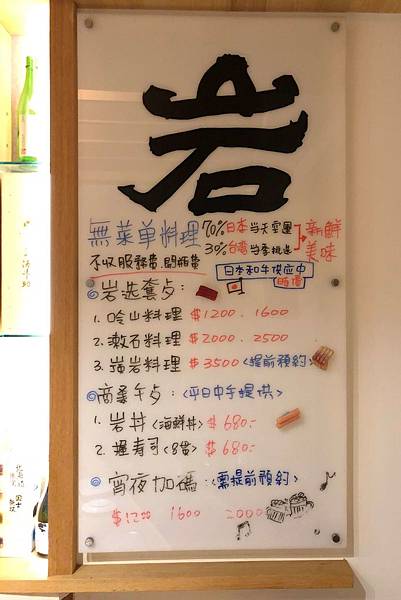 岩
無菜单料理 70%日本 当天空運 新鮮
30%台湾 当季挑选 美味
不收服務費.開瓶費 日本和牛供应中
時價
岩选套歺:
1. 唫山料理 $1200. 1600
2. 漱石料理 $2000. 2500
3. 岩料理 $3500<提前預約>
商業午歺:<平日中午提供>
1. 岩丼<海鮮丼> $680.-
2. 握寿司<8貫> $680.-
宵夜加碼:<需提前預約>
$1200 1600 2000